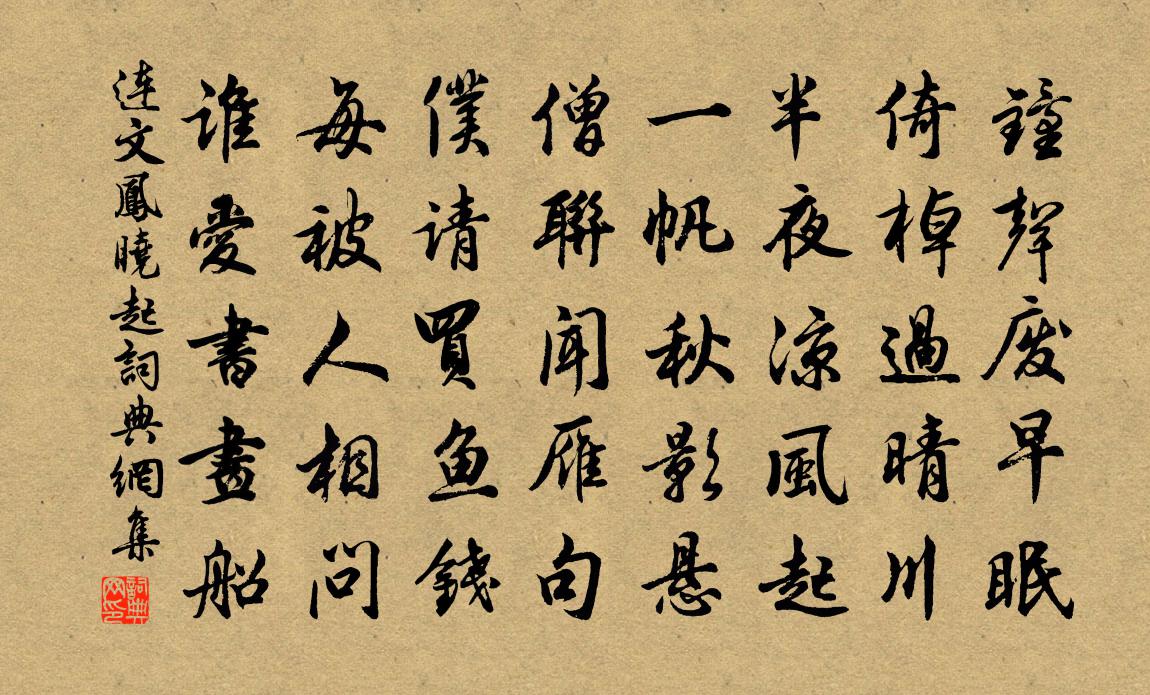 鐘聲廢早眠
倚棹過晴川
半夜涼風起
一帆秋影懸
僧聯聞雁句
僕請買魚錢
每被人相問
誰愛書畫船
連文鳳曉起詞典網集
詞典网印